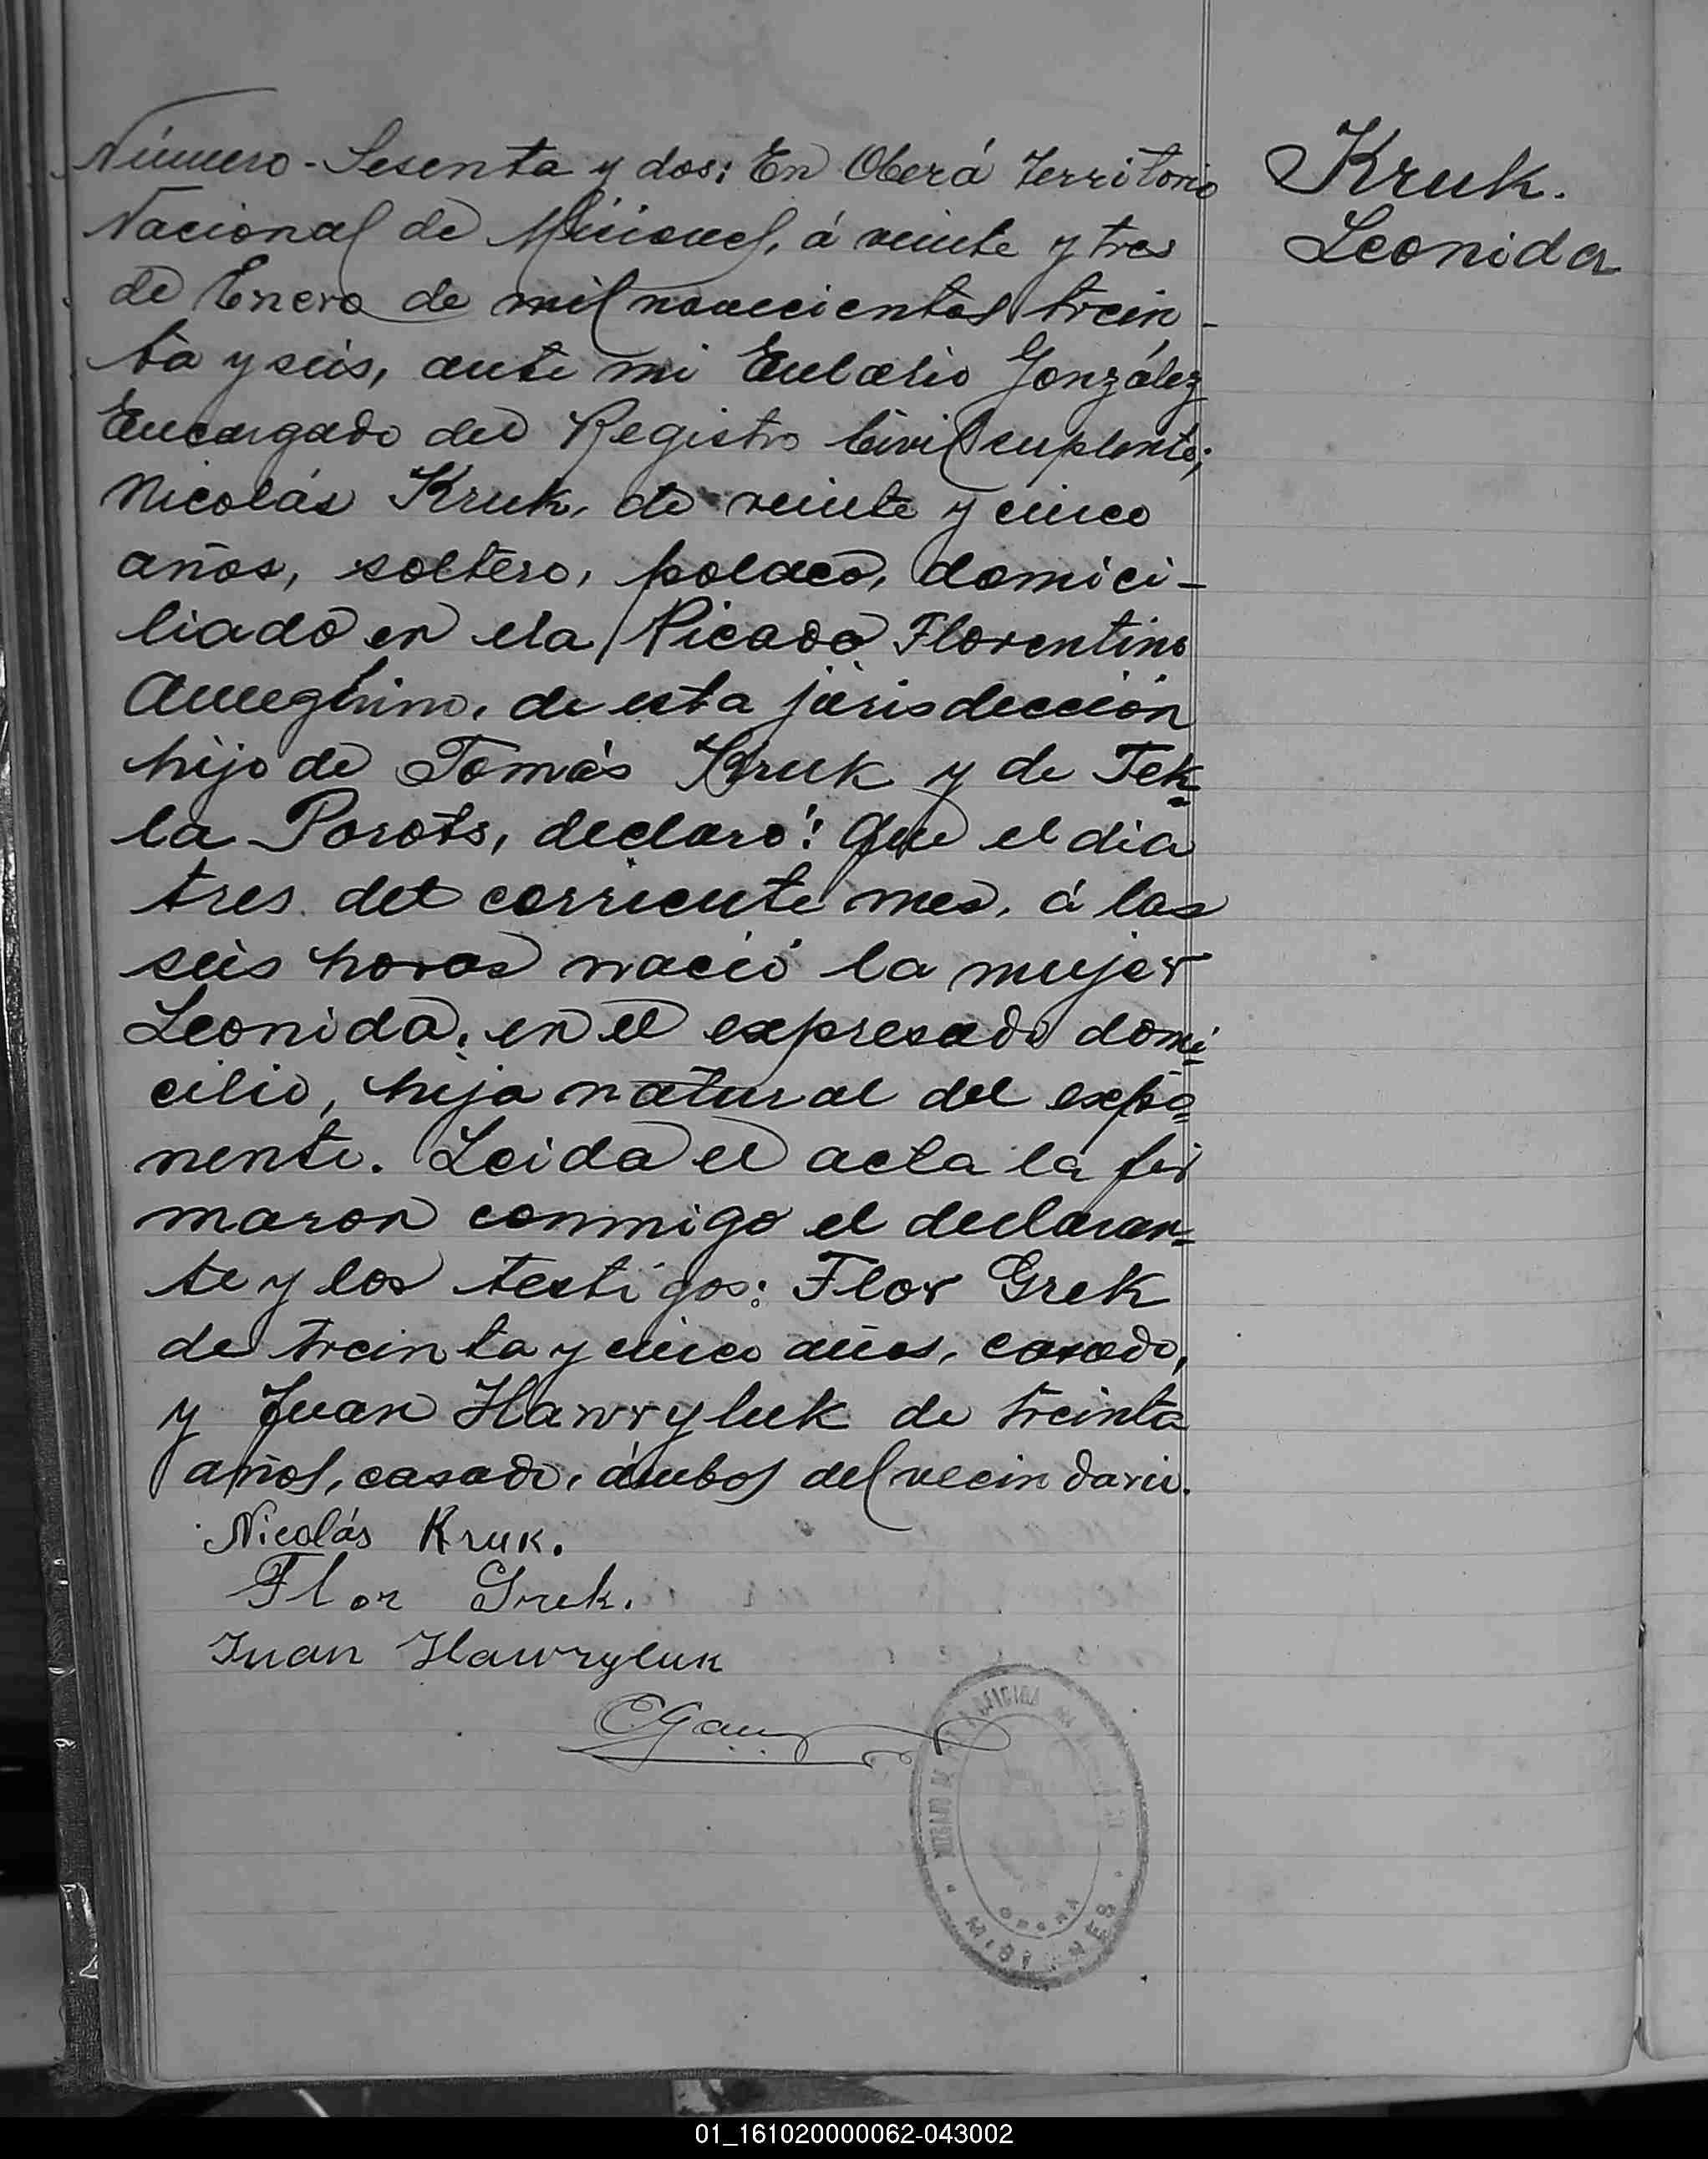 Número - Sesenta y dos: En Oberá Territorio
Nacional de Misiones, á veinte y tres
de Enero de mil novecientos trein-
ta y seis, ante mi Eulalio González
Encargado del Registro Civil suplente;
Nicolás Kruk, de veinte y cinco
años, soltero, polaco, domici-
liado en ela Picada Florentino
Ameghino, de esta jurisdección
hijo de Tomás Kruk y de Tek-
la Porots, declaró: Que el dia
tres del corriente mes, á las
seis horas nació la mujer
Leonida, en el expresado domi-
cilio, hija natural del expo-
nente. Leida el acta la fir
maron conmigo el declaran-
te y los testigos: Flor Grek
de treinta y cinco años, casado,
y Juan Hawryluk de treinta
años, casado, ámbos del vecindario.
Nicolás Kruk.
Flor Grek.
Juan Hawryluk
EGonz
MISIONES
OBERA
Kruk.
Leonida
01_161020000062-043002